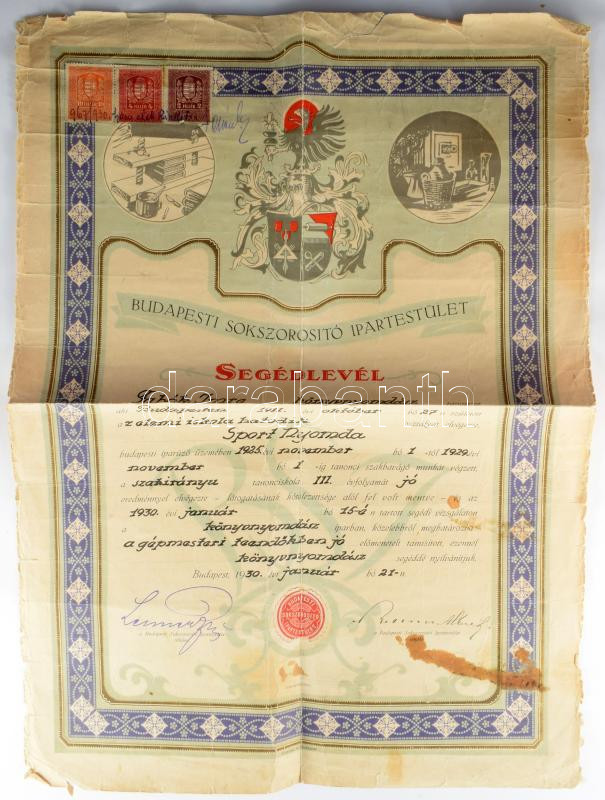 BUDAPESTI SOKSZOROSITÓ IPARTESTÜLET
SEGÉDLEVÉL
aki Budapesten 1911. évi október hó 27-n született
az elemi iskola hatodik osztályát elvégezte,
Sport Nyomda
budapesti iparűző üzemében 1925. évi november hó 1 -től 1929 évi
november hó 1 -ig tanonci szakbavágó munkát végzett,
a szakirányu tanonciskola III. évfolyamát jó
eredménnyel elvégezte – látogatásának kötelezettsége alól fel volt mentve – és az
1930. évi január hó 15-én tartott segédi vizsgálaton
a könyvnyomdász iparban, közelebbről meghatározva
a gépmesteri teendőkben jó előmenetelt tanusított, ezennel
könyvnyomdász segéddé nyilvánítjuk.
Budapest, 1930. évi január hó 21-n.
BUDAPESTI SOKSZOROSITÓ IPARTESTÜLET
a Budapesti Sokszorosító Ipartestület
a Budapesti Sokszorosító Ipartestület
darabanth